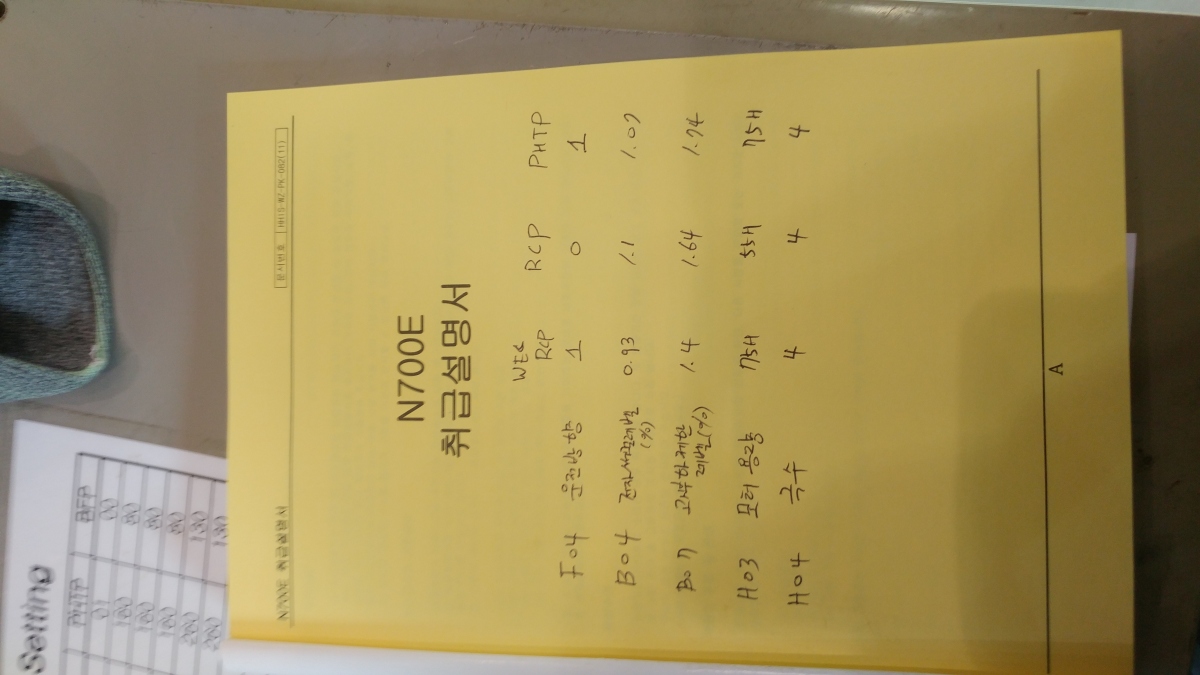 N700E 취급설명서
문서번호 HHIS-WZ-PK-062(11)
N700E
취급설명서
WEG
RCP RCP PHTP
F04 운전방향 1 0 1
B04 전자서멀레벨 0.93 1.1 1.07
(%)
B07 과부하제한 1.4 1.64 1.74
레벨(%)
H03 모터 용량 75H 55H 75H
H04 극수 4 4 4
A
Setting
PHTP BFP
01 00
180 80
180 80
180 80
280 130
280 130